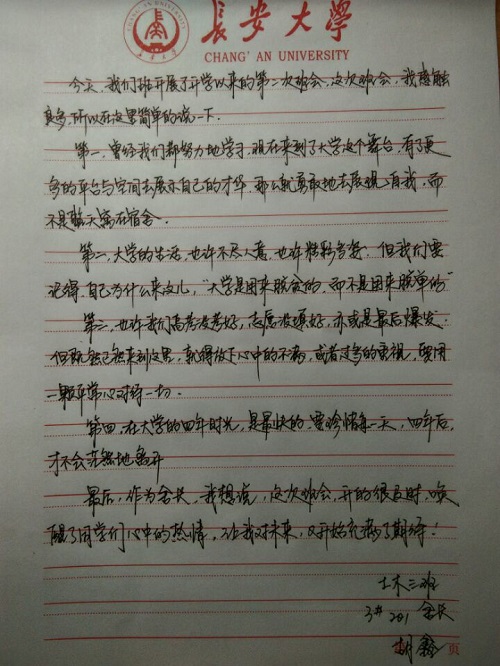 長安大學
CHANG' AN UNIVERSITY
今天,我们班开展了开学以来的第二次班会,这次班会,我感触
良多,所以在这里简单的说一下.
第一,曾经我们都努力地学习,现在来到了大学这个舞台,有了更
多的平台与空间去展示自己的才华,那么就勇敢地去展现自我,而
不是躺天窝在宿舍.
第二,大学的生活,也许不尽人意,也许精彩多姿.但我们要
记得,自己为什么来这儿,"大学是用来脱贫的,而不是用来脱单的"
第三,也许我们高考没考好,志愿没填好,亦或是最后爆发.
但既然已经来到这里,就得放下心中的不满,或者过多的重视,要用
一颗平常心对待一切.
第四,在大学的四年时光,是最快的,要珍惜每一天,四年后,
才不会茫然地离开
最后,作为舍长,我想说,这次班会,开的很及时,唤
醒了同学们心中的热情,让我对未来,又开始充满了期待!
土木三班
3# 201 舍长
胡鑫
页